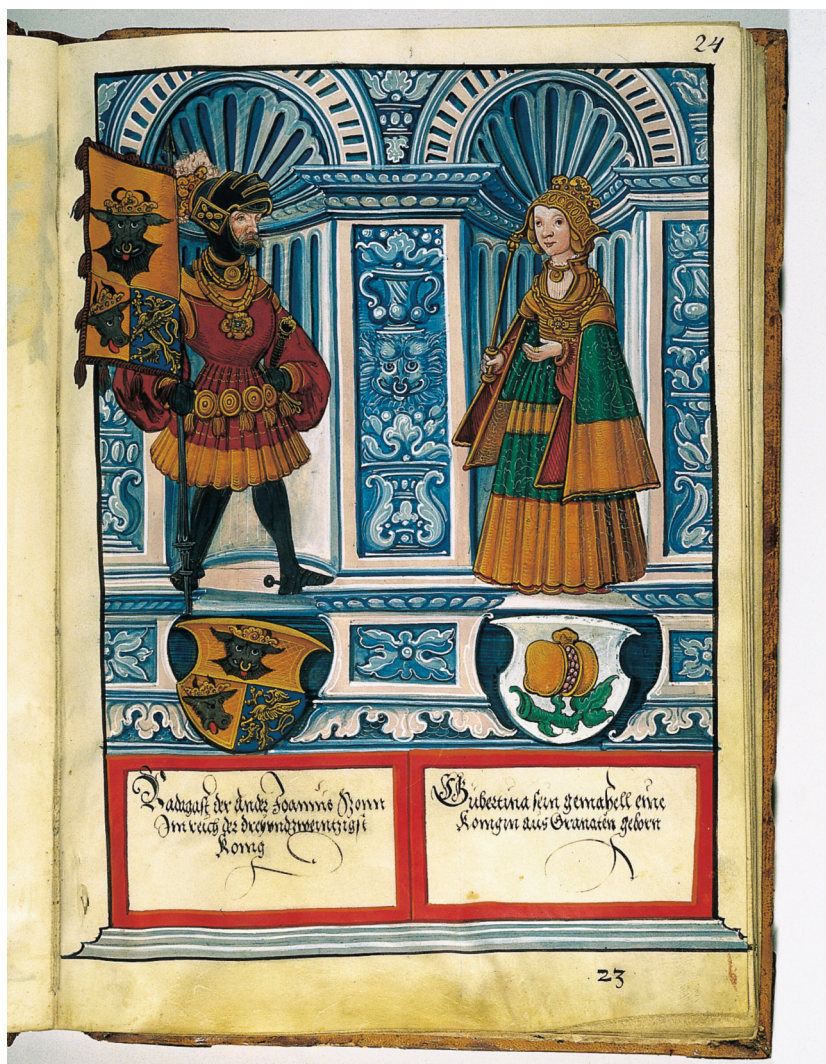 24
Radagast der Ander Joannis Sonn
Im reich der dreyundzweintzigst
Konig
Gubertina sein gemahell eine
Konigin aus Granaten geborn
23